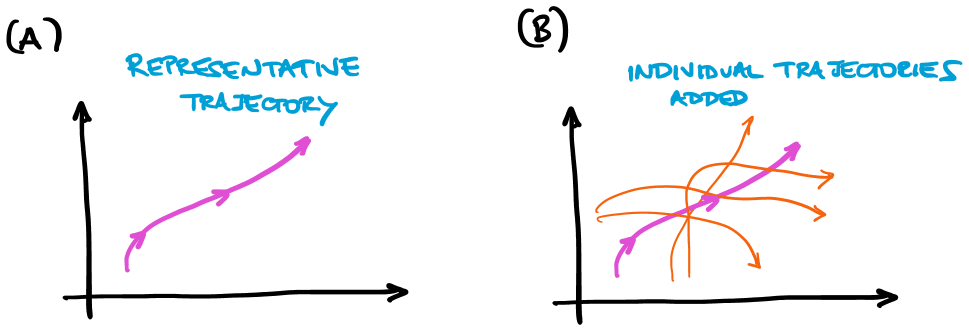 (A)
REPRESENTATIVE
TRAJECTORY
(B)
INDIVIDUAL TRAJECTORIES
ADDED